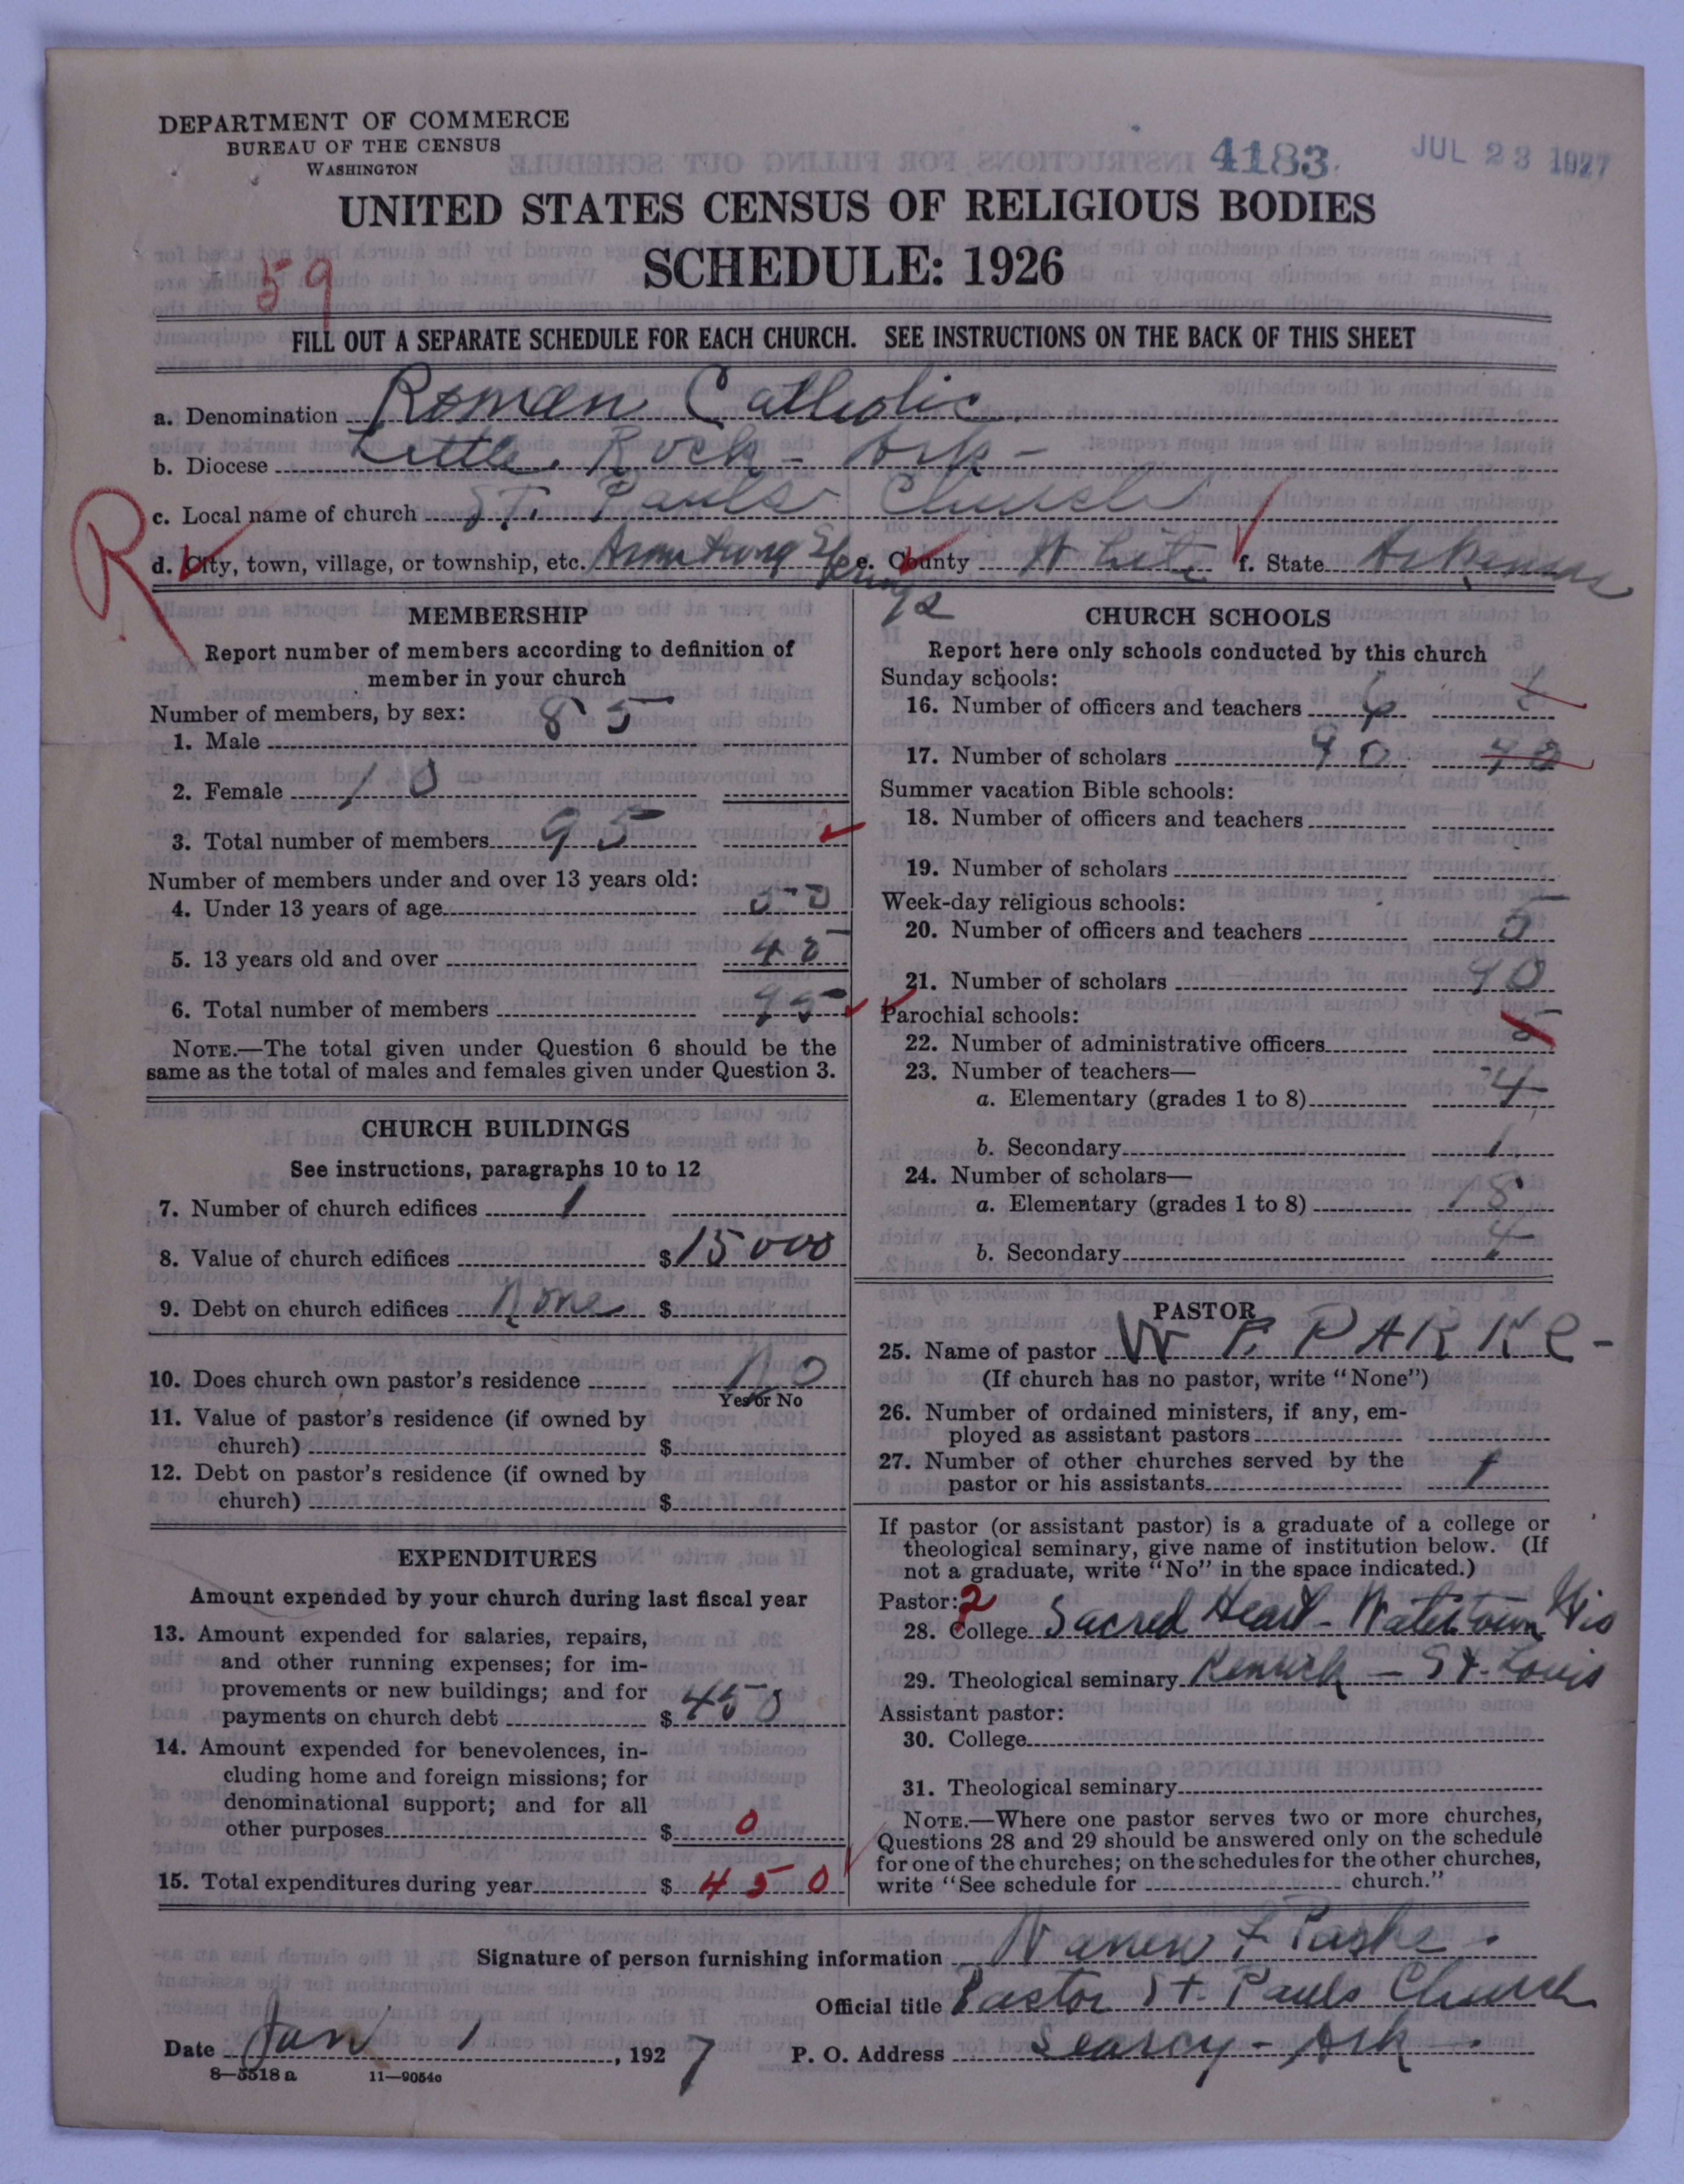 DEPARTMENT OF COMMERCE
BUREAU OF THE CENSUS
WASHINGTON
4183.
JUL 23 1927
UNITED STATES CENSUS OF RELIGIOUS BODIES
SCHEDULE: 1926
59
FILL OUT A SEPARATE SCHEDULE FOR EACH CHURCH. SEE INSTRUCTIONS ON THE BACK OF THIS SHEET
a. Denomination Roman Catholic
b. Diocese Little Rock - Ark -
c. Local name of church St. Pauls Church
R
d. City, town, village, or township, etc. Armstrong Springs e. County White f. State Arkansas
MEMBERSHIP
Report number of members according to definition of
member in your church
Number of members, by sex:
1. Male 85
2. Female 10
3. Total number of members 95
Number of members under and over 13 years old:
4. Under 13 years of age 50
5. 13 years old and over 45
6. Total number of members 95
NOTE.—The total given under Question 6 should be the
same as the total of males and females given under Question 3.
CHURCH BUILDINGS
See instructions, paragraphs 10 to 12
7. Number of church edifices 1
8. Value of church edifices $15000
9. Debt on church edifices None $
10. Does church own pastor's residence No
Yes or No
11. Value of pastor's residence (if owned by
church) $
12. Debt on pastor's residence (if owned by
church) $
EXPENDITURES
Amount expended by your church during last fiscal year
13. Amount expended for salaries, repairs,
and other running expenses; for im-
provements or new buildings; and for
payments on church debt $ 450
14. Amount expended for benevolences, in-
cluding home and foreign missions; for
denominational support; and for all
other purposes $ 0
15. Total expenditures during year $ 450
CHURCH SCHOOLS
Report here only schools conducted by this church
Sunday schools:
16. Number of officers and teachers
17. Number of scholars 90 90
Summer vacation Bible schools:
18. Number of officers and teachers
19. Number of scholars
Week-day religious schools:
20. Number of officers and teachers 5
21. Number of scholars 90
Parochial schools:
22. Number of administrative officers 5
23. Number of teachers—
a. Elementary (grades 1 to 8) 4
b. Secondary 1
24. Number of scholars—
a. Elementary (grades 1 to 8) 18
b. Secondary 4
PASTOR
25. Name of pastor W F. PARKE -
(If church has no pastor, write "None")
26. Number of ordained ministers, if any, em-
ployed as assistant pastors
27. Number of other churches served by the
pastor or his assistants 1
If pastor (or assistant pastor) is a graduate of a college or
theological seminary, give name of institution below. (If
not a graduate, write "No" in the space indicated.)
Pastor: 2
28. College Sacred Heart - Watertown Wis
29. Theological seminary Kenrick - St. Louis
Assistant pastor:
30. College
31. Theological seminary
NOTE.—Where one pastor serves two or more churches,
Questions 28 and 29 should be answered only on the schedule
for one of the churches; on the schedules for the other churches,
write "See schedule for church."
Signature of person furnishing information Warren F Parke.
Official title Pastor St. Pauls Church
Date Jan 1, 1927 P. O. Address Searcy - Ark.
8—5518 a 11—9054c